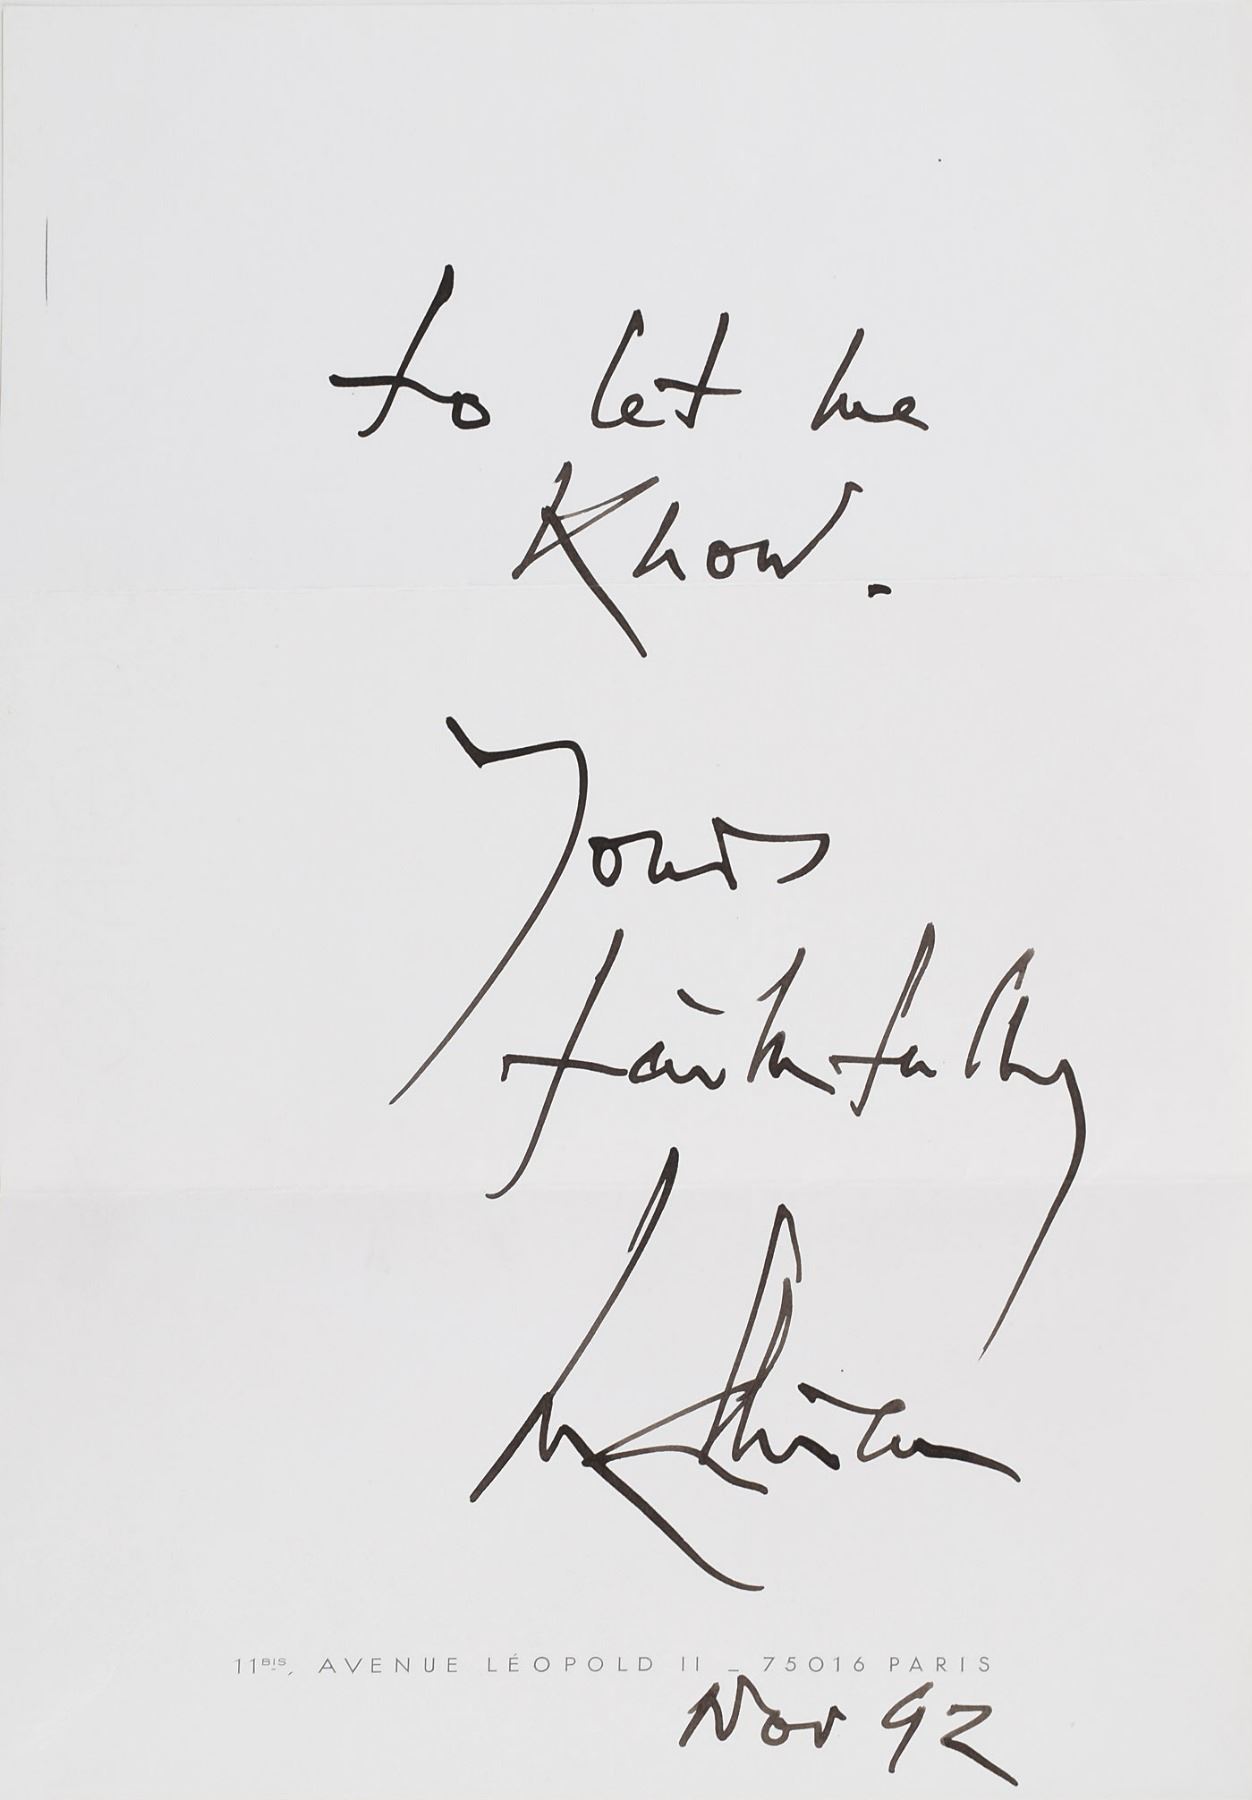 to let me
Know.
Yours
faithfully
11BIS, AVENUE LÉOPOLD II _ 75016 PARIS
Nov 92